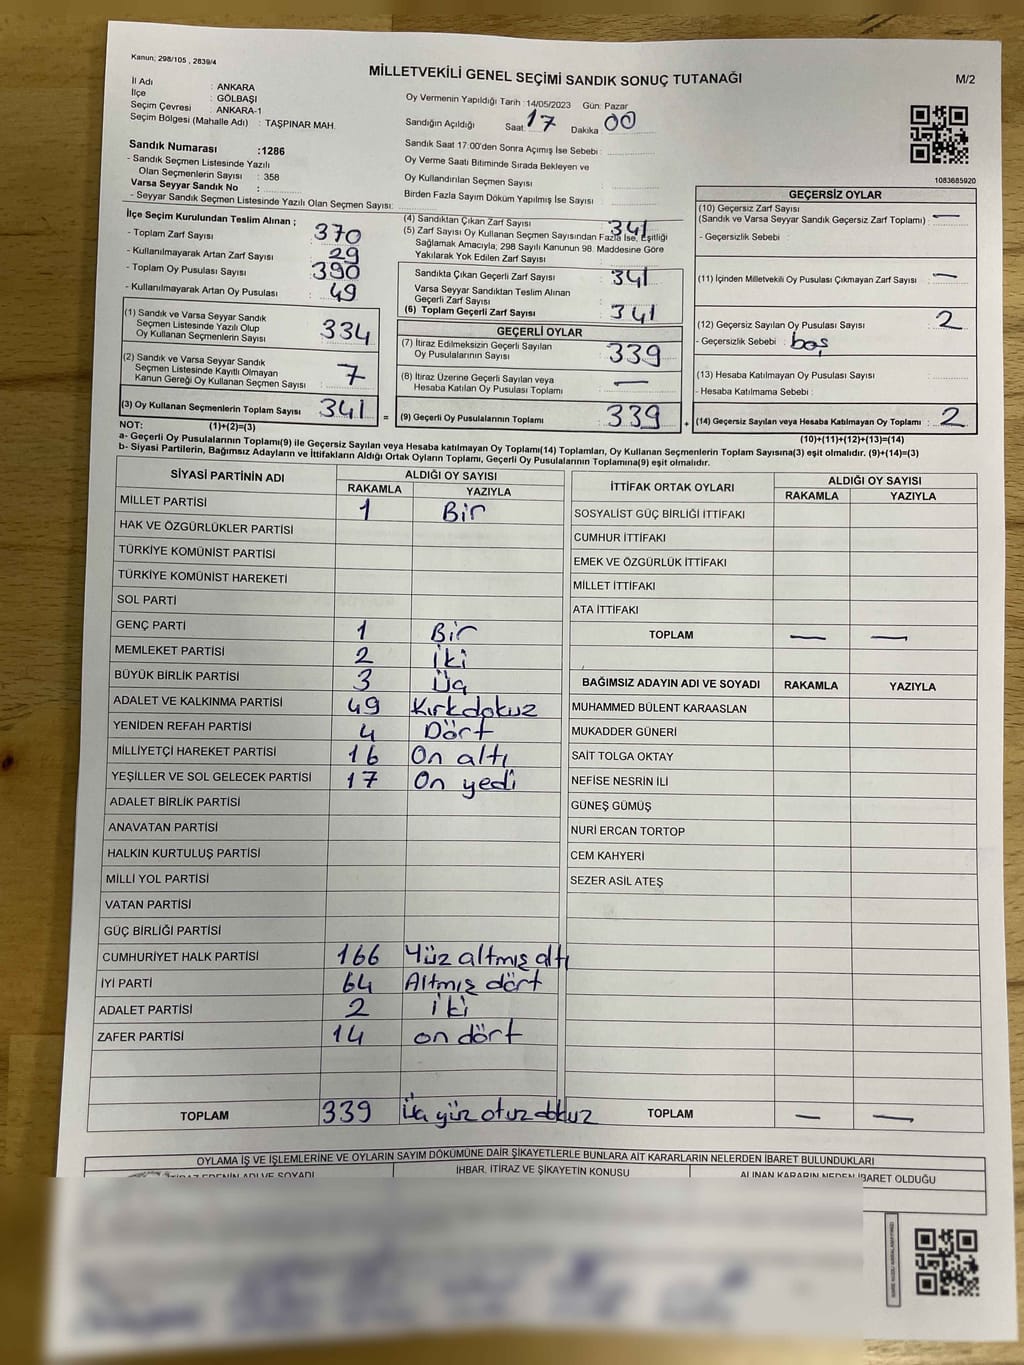 Kanun; 298/105 , 2839/4
MİLLETVEKİLİ GENEL SEÇİMİ SANDIK SONUÇ TUTANAĞI
M/2
İl Adı : ANKARA
İlçe : GÖLBAŞI
Seçim Çevresi : ANKARA-1
Seçim Bölgesi (Mahalle Adı) : TAŞPINAR MAH.
Oy Vermenin Yapıldığı Tarih : 14/05/2023 Gün: Pazar
Sandığın Açıldığı Saat 17 Dakika 00
Sandık Numarası :1286
- Sandık Seçmen Listesinde Yazılı
Olan Seçmenlerin Sayısı : 358
Varsa Seyyar Sandık No :
- Seyyar Sandık Seçmen Listesinde Yazılı Olan Seçmen Sayısı:
Sandık Saat 17:00'den Sonra Açımış İse Sebebi :
Oy Verme Saati Bitiminde Sırada Bekleyen ve
Oy Kullandırılan Seçmen Sayısı :
Birden Fazla Sayım Döküm Yapılmış İse Sayısı :
1083685920
İlçe Seçim Kurulundan Teslim Alınan ;
- Toplam Zarf Sayısı : 370
- Kullanılmayarak Artan Zarf Sayısı : 29
- Toplam Oy Pusulası Sayısı : 390
- Kullanılmayarak Artan Oy Pusulası : 49
(1) Sandık ve Varsa Seyyar Sandık
Seçmen Listesinde Yazılı Olup
Oy Kullanan Seçmenlerin Sayısı : 334
(2) Sandık ve Varsa Seyyar Sandık
Seçmen Listesinde Kayıtlı Olmayan
Kanun Gereği Oy Kullanan Seçmen Sayısı : 7
(3) Oy Kullanan Seçmenlerin Toplam Sayısı : 341 =
(4) Sandıktan Çıkan Zarf Sayısı : 341
(5) Zarf Sayısı Oy Kullanan Seçmen Sayısından Fazla İse, Eşitliği
Sağlamak Amacıyla; 298 Sayılı Kanunun 98. Maddesine Göre
Yakılarak Yok Edilen Zarf Sayısı :
Sandıkta Çıkan Geçerli Zarf Sayısı : 341
Varsa Seyyar Sandıktan Teslim Alınan
Geçerli Zarf Sayısı :
(6) Toplam Geçerli Zarf Sayısı : 341
GEÇERLİ OYLAR
(7) İtiraz Edilmeksizin Geçerli Sayılan
Oy Pusulalarının Sayısı : 339
(8) İtiraz Üzerine Geçerli Sayılan veya
Hesaba Katılan Oy Pusulası Toplamı : —
(9) Geçerli Oy Pusulalarının Toplamı : 339 +
GEÇERSİZ OYLAR
(10) Geçersiz Zarf Sayısı
(Sandık ve Varsa Seyyar Sandık Geçersiz Zarf Toplamı) : —
- Geçersizlik Sebebi :
(11) İçinden Milletvekili Oy Pusulası Çıkmayan Zarf Sayısı : —
(12) Geçersiz Sayılan Oy Pusulası Sayısı : 2
- Geçersizlik Sebebi : boş
(13) Hesaba Katılmayan Oy Pusulası Sayısı :
- Hesaba Katılmama Sebebi :
(14) Geçersiz Sayılan veya Hesaba Katılmayan Oy Toplamı : 2
NOT: (1)+(2)=(3)
(10)+(11)+(12)+(13)=(14)
a- Geçerli Oy Pusulalarının Toplamı(9) ile Geçersiz Sayılan veya Hesaba katılmayan Oy Toplamı(14) Toplamları, Oy Kullanan Seçmenlerin Toplam Sayısına(3) eşit olmalıdır. (9)+(14)=(3)
b- Siyasi Partilerin, Bağımsız Adayların ve İttifakların Aldığı Ortak Oyların Toplamı, Geçerli Oy Pusulalarının Toplamına(9) eşit olmalıdır.
SİYASİ PARTİNİN ADI ALDIĞI OY SAYISI
RAKAMLA YAZIYLA
MİLLET PARTİSİ 1 Bir
HAK VE ÖZGÜRLÜKLER PARTİSİ
TÜRKİYE KOMÜNİST PARTİSİ
TÜRKİYE KOMÜNİST HAREKETİ
SOL PARTİ
GENÇ PARTİ 1 Bir
MEMLEKET PARTİSİ 2 İki
BÜYÜK BİRLİK PARTİSİ 3 Üç
ADALET VE KALKINMA PARTİSİ 49 Kırkdokuz
YENİDEN REFAH PARTİSİ 4 Dört
MİLLİYETÇİ HAREKET PARTİSİ 16 On altı
YEŞİLLER VE SOL GELECEK PARTİSİ 17 On yedi
ADALET BİRLİK PARTİSİ
ANAVATAN PARTİSİ
HALKIN KURTULUŞ PARTİSİ
MİLLİ YOL PARTİSİ
VATAN PARTİSİ
GÜÇ BİRLİĞİ PARTİSİ
CUMHURİYET HALK PARTİSİ 166 Yüz altmış altı
İYİ PARTİ 64 Altmış dört
ADALET PARTİSİ 2 iki
ZAFER PARTİSİ 14 on dört
TOPLAM 339 Üç yüz otuz dokuz
İTTİFAK ORTAK OYLARI ALDIĞI OY SAYISI
RAKAMLA YAZIYLA
SOSYALİST GÜÇ BİRLİĞİ İTTİFAKI
CUMHUR İTTİFAKI
EMEK VE ÖZGÜRLÜK İTTİFAKI
MİLLET İTTİFAKI
ATA İTTİFAKI
TOPLAM — —
BAĞIMSIZ ADAYIN ADI VE SOYADI RAKAMLA YAZIYLA
MUHAMMED BÜLENT KARAASLAN
MUKADDER GÜNERİ
SAİT TOLGA OKTAY
NEFİSE NESRİN İLİ
GÜNEŞ GÜMÜŞ
NURİ ERCAN TORTOP
CEM KAHYERİ
SEZER ASİL ATEŞ
TOPLAM — —
OYLAMA İŞ VE İŞLEMLERİNE VE OYLARIN SAYIM DÖKÜMÜNE DAİR ŞİKAYETLERLE BUNLARA AİT KARARLARIN NELERDEN İBARET BULUNDUKLARI
EDENİN ADI VE SOYADI İHBAR, İTİRAZ VE ŞİKAYETİN KONUSU ALINAN KARARIN NEDEN İBARET OLDUĞU